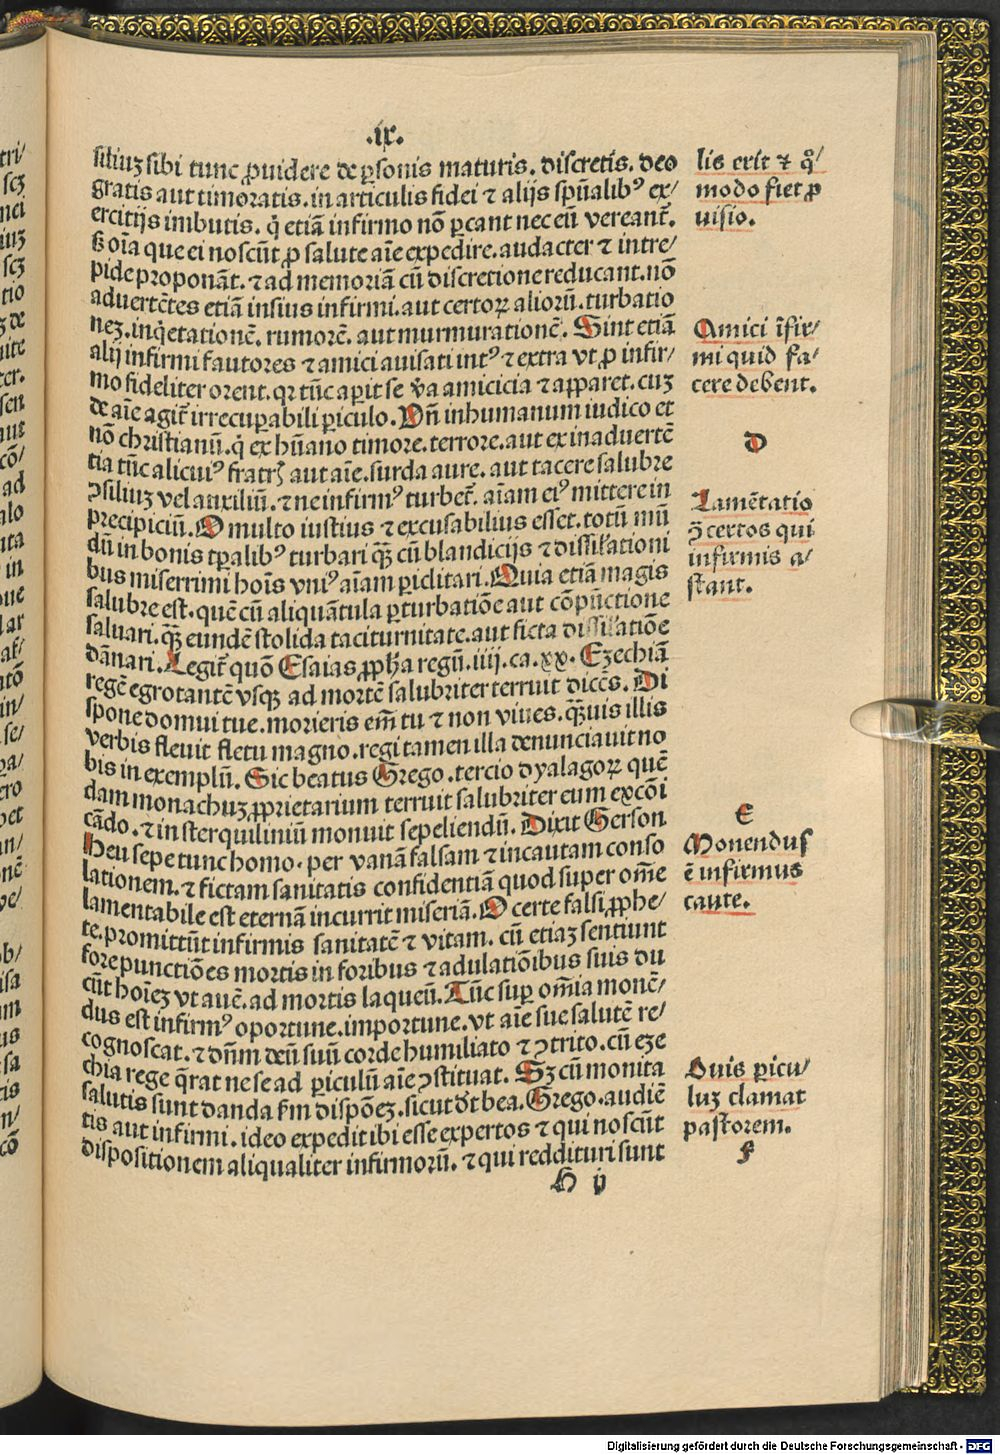 .ix.
siliuz sibi tunc ꝓuidere de ꝑsonis maturis. discretis. deo
gratis aut timoratis. in articulis fidei ⁊ alijs spũalibꝰ ex/
ercitijs imbutis. q̇ etiã infirmo nõ ꝑcant nec eũ vereant̃.
ß oĩa que ei noscũt ꝓ salute aĩe expedire. audacter ⁊ intre/
pide proponãt. ⁊ ad memoriã cũ discretione reducant. nõ
aduertẽtes etiã insius infirmi. aut certoꝝ alioꝝũ. turbatio
nez. inq̇etationẽ. rumorẽ. aut murmurationẽ. Sint etiã
alij infirmi fautores ⁊ amici auisati intꝰ ⁊ extra vt ꝓ infir/
mo fideliter orent. qꝛ tũc aꝑit se ṽa amicicia ⁊ apparet. cuz
de aĩe agit̃ irrecuꝑabili ꝑiculo. Vñ inhumanum iudico et
nõ christianũ. q̇ ex hũano timore. terrore. aut ex inaduertẽ
tia tũc alicuiꝰ fratrꝭ aut aĩe. surda aure. aut tacere salubre
ꝯsiliuz vel auxiliũ. ⁊ ne infirmꝰ turbet̃. aĩam eiꝰ mittere in
precipiciũ. O multo iustius ⁊ excusabilius esset. totũ mũ
dũ in bonis tꝑalibꝰ turbari qʒ̃ cũ blandicijs ⁊ dissilationi
bus miserrimi hoĩs vniꝰ aĩam ꝑiclitari. Quia etiã magis
salubre est. quẽ cũ aliquãtula ꝑturbatiõe aut cõpũctione
saluari. qʒ̃ eundẽ stolida taciturnitate. aut ficta dissilatiõe
dãnari. Legit̃ quõ Esaias ꝓpħa regũ. iiij. ca. xx. Ezechiã
regẽ egrotantẽ vsqꝫ ad mortẽ salubriter terruit dicẽs. Di
spone domui tue. morieris em̃ tu ⁊ non viues. qʒ̃uis illis
verbis fleuit fletu magno. regi tamen illa denunciauit no
bis in exemplũ. Sic beatus Grego. tercio dyalagoꝝ quẽ
dam monachuz ꝓprietarium terruit salubriter eum excõi
cãdo. ⁊ in sterquiliniũ monuit sepeliendũ. Dixit Gerson
Heu sepe tunc homo. per vanã falsam ⁊ incautam conso
lationem. ⁊ fictam sanitatis confidentiã quod super om̃e
lamentabile est eternã incurrit miseriã. O certe falsi ꝓphe/
te. promittũt infirmis sanitatẽ ⁊ vitam. cũ etiaz sentiunt
fore punctiões mortis in foribus ⁊ adulatiõibus suis du
cũt hoĩez vt auẽ. ad mortis laqueũ. Tũc suꝑ om̃ia monẽ/
dus est infirmꝰ oportune. importune. vt aĩe sue salutẽ re/
cognoscat. ⁊ dñm deũ suũ corde humiliato ⁊ ꝯtrito. cũ eze
chia rege q̃rat ne se ad ꝑiculũ aĩe ꝯstituat. Sz cũ monita
salutis sunt danda fm dispõez. sicut dt̃ bea. Grego. audiẽ
tis aut infirmi. ideo expedit ibi esse expertos ⁊ qui noscũt
dispositionem aliqualiter infirmoꝝũ. ⁊ qui reddituri sunt
H ij
lis erit ⁊ qͦ/
modo fiet ꝓ
uisio.
Amici ĩfir/
mi quid fa/
cere debent.
D
Lamẽtatio
ꝯ̃ certos qui
infirmis a/
stant.
E
Monendus
ẽ infirmus
caute.
Ouis ꝑicu/
luz clamat
pastorem.
F
Digitalisierung gefördert durch die Deutsche Forschungsgemeinschaft - DFG